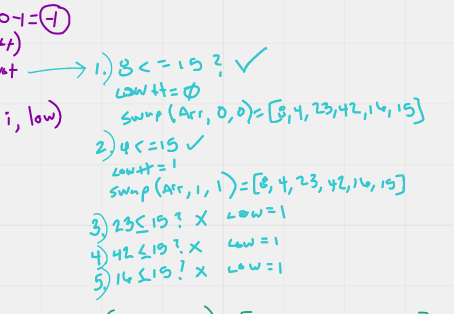 0-1=-1
1.) 8 <= 15? ✓
low++ = 0
swap (Arr, 0, 0) = [8, 4, 23, 42, 16, 15]
i, low)
2.) 4 <= 15 ✓
low++ = 1
swap (Arr, 1, 1) = [8, 4, 23, 42, 16, 15]
3.) 23 ≤ 15? X low = 1
4.) 42 ≤ 15? X low = 1
5.) 16 ≤ 15? X low = 1